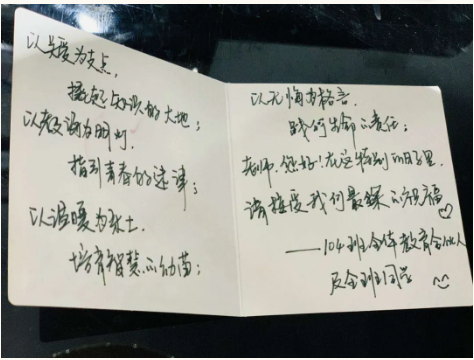 以关爱为支点，
撬起知识的大地；
以教诲为明灯，
指引青春的迷津；
以温暖为沃土，
培育智慧的幼苗；
以无悔为格言，
践行生命之责任；
老师，您好！在这特别的日子里，
请接受我们最深的祝福♡
——104班全体教育合伙人
及全班同学